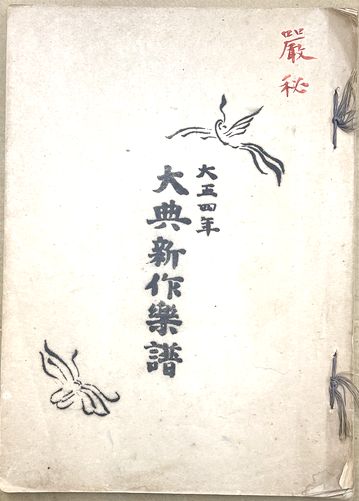 嚴秘
大正四年
大典新作樂譜